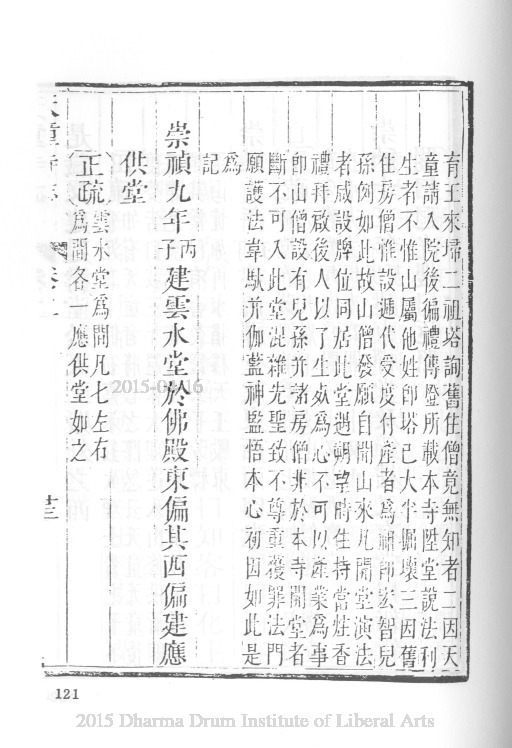 育王來埽二祖塔詢舊住僧竟無知者二因天
童請入院後徧禮傳燈所載本寺陞堂說法利
生者不惟山屬他姓卽塔已大半掘壞三因舊
住房僧惟設遞代受度付產者爲祖師宏智兒
孫例如此故山僧發願自開山來凡開堂演法
者咸設牌位同居此堂遇朔望時住持當炷香
禮拜啟後人以了生死爲心不可以產業爲事
卽山僧設有兒孫并諸房僧非於本寺開堂者
斷不可入此堂混雜先聖致不尊重獲罪法門
願護法韋馱并伽藍神監悟本心初因如此是
爲
記
崇禎九年丙子建雲水堂於佛殿東偏其西偏建應
供堂
正疏雲水堂爲間凡七左右
爲間各一應供堂如之
天童寺志 卷二
121
2015-04-16
2015 Dharma Drum Institute of Liberal Arts